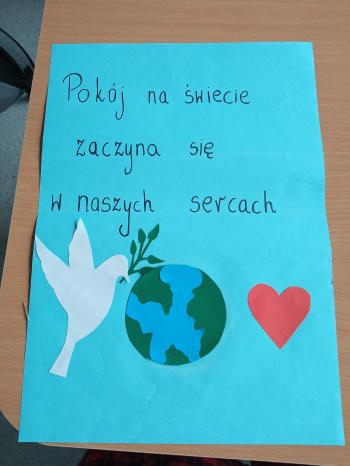 Pokój na świecie
zaczyna się
w naszych sercach